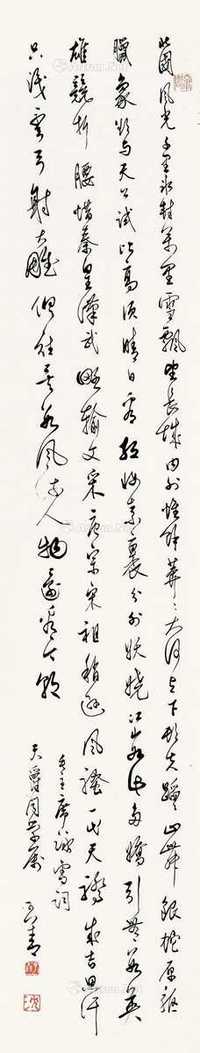 北國風光千里冰封萬里雪飄望長城內外惟餘莽〻大河上下頓失滔〻山舞銀蛇原馳
臘象欲與天公試比高須晴日看紅妝素裹分外妖嬈江山如此多嬌引無數英
雄競折腰惜秦皇漢武略輸文采唐宗宋祖稍遜風騷一代天驕成吉思汗
只識彎弓射大雕俱往矣數風流人物還看今朝
毛主席詠雪詞
天爵同學屬